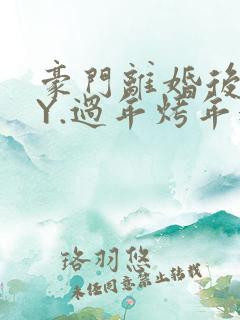 豪門離婚後
Y.過年烤年
珞羽悠
未經同意禁止轉載